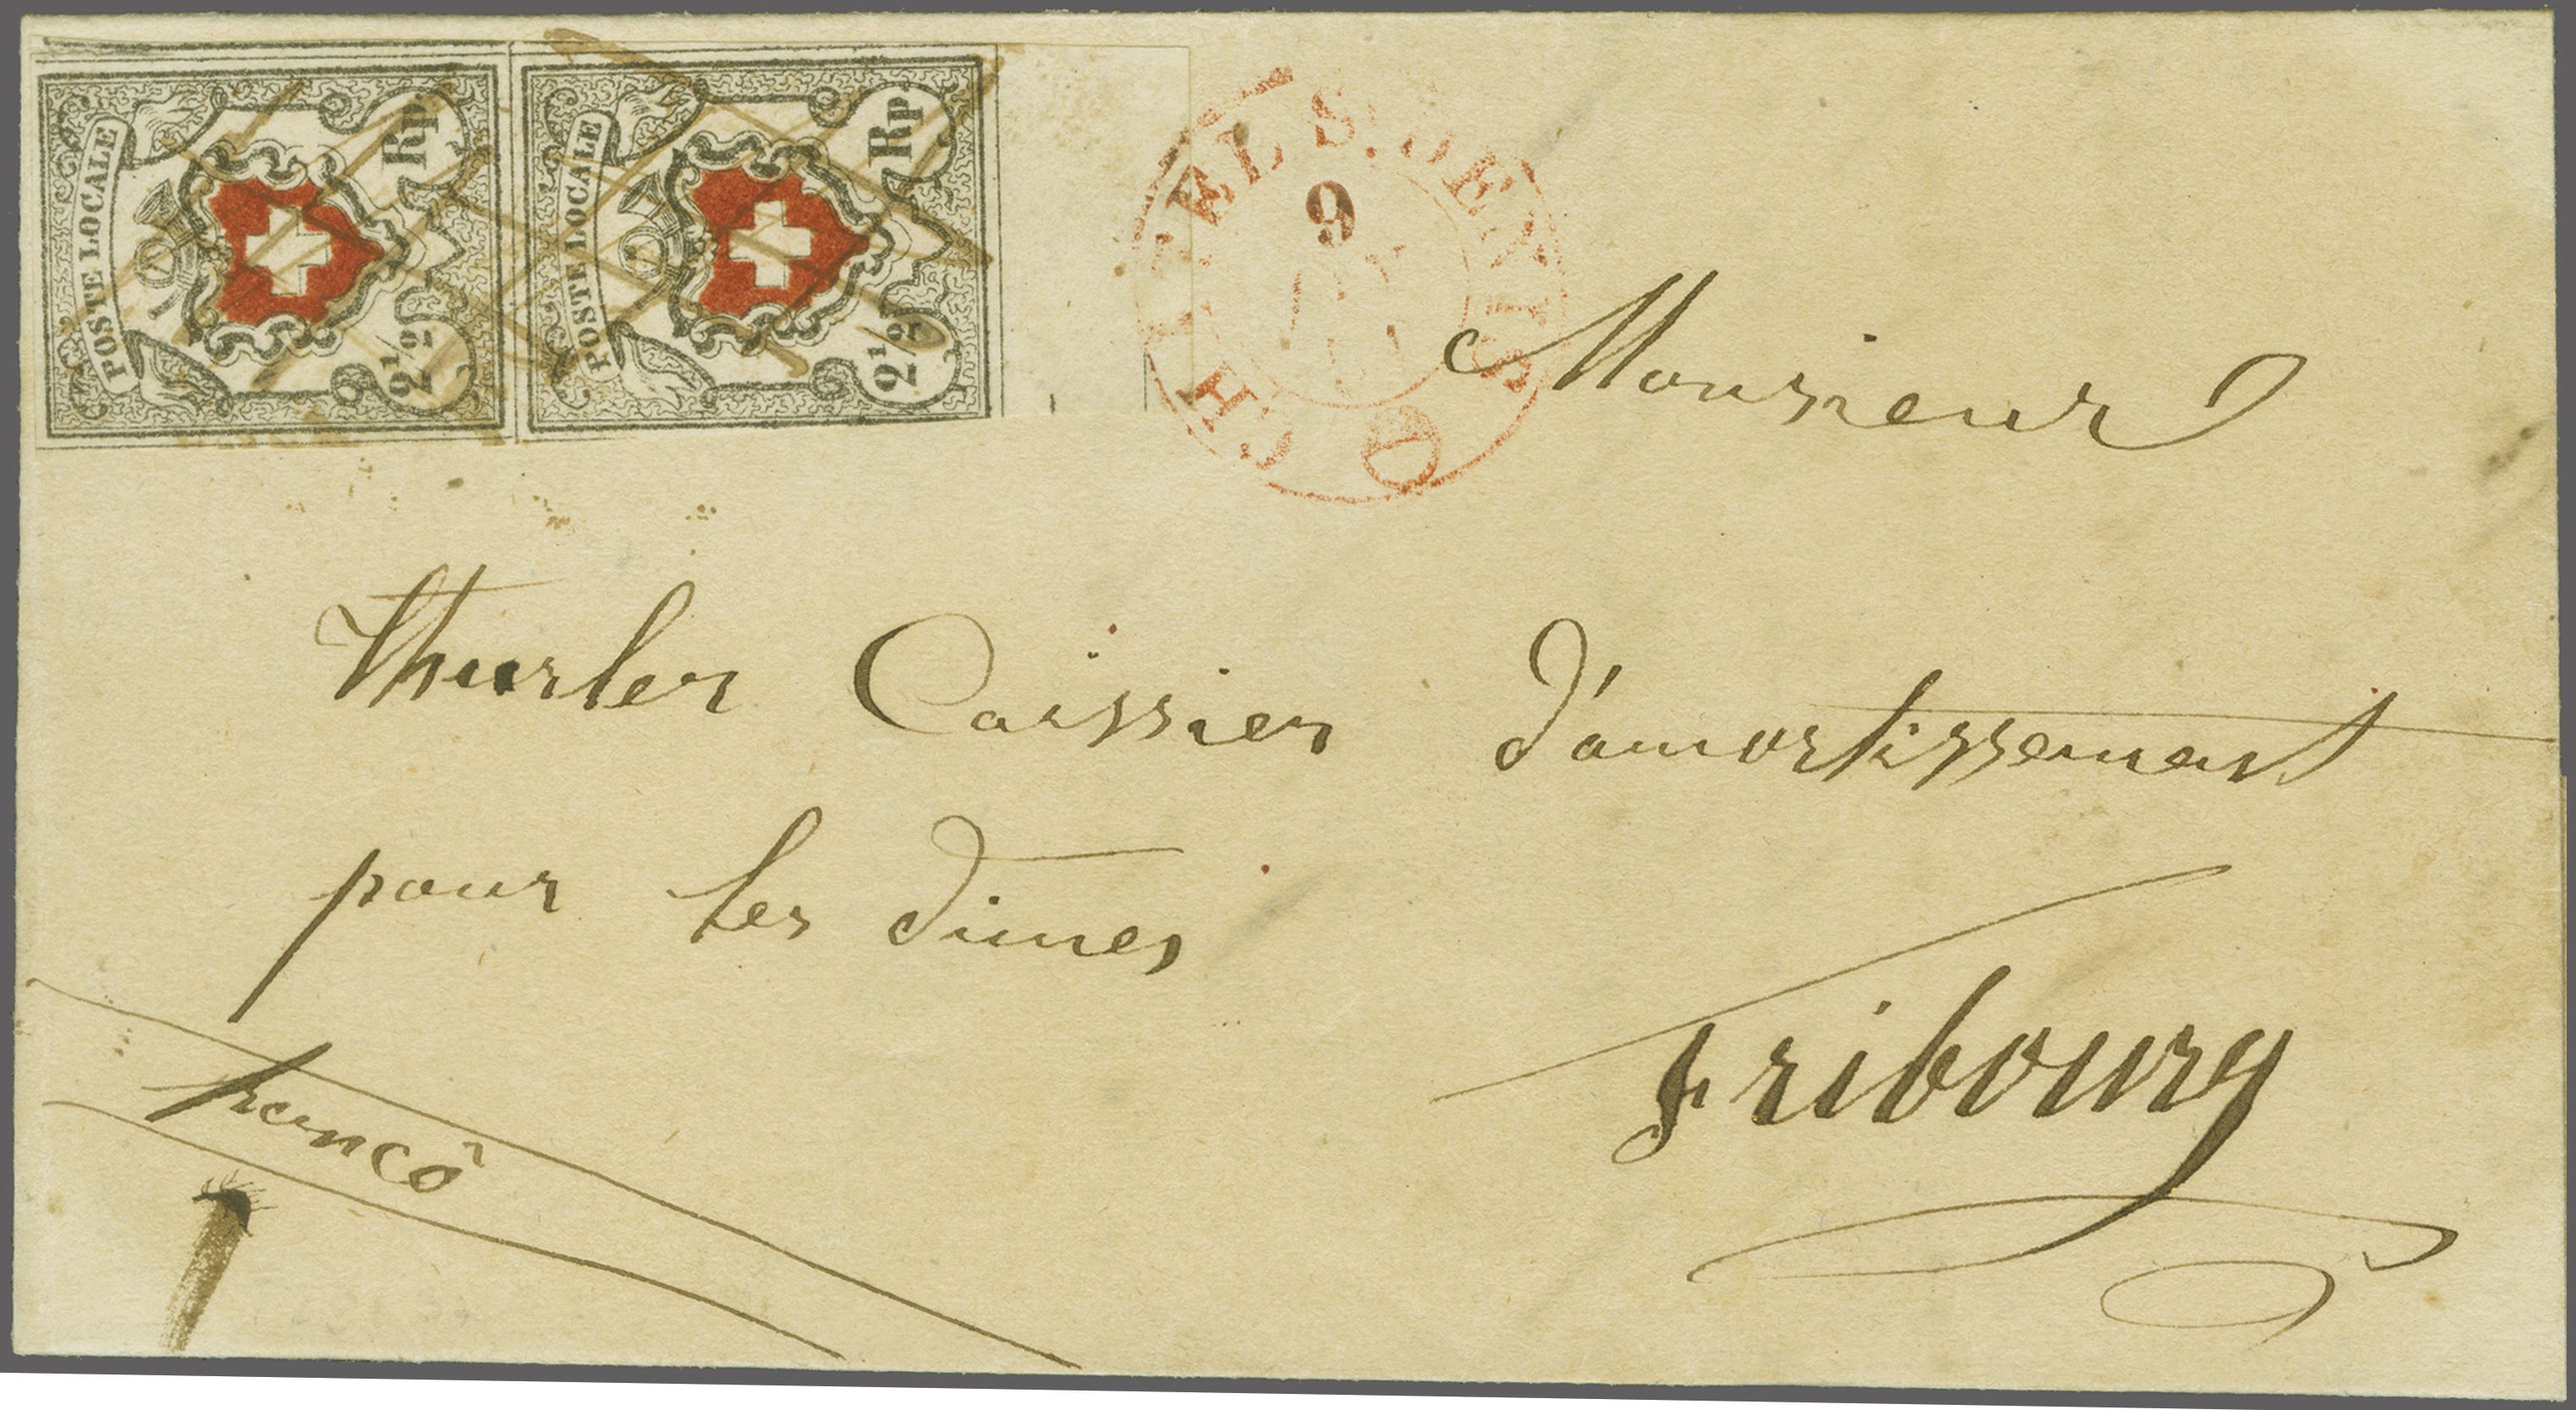 POSTE LOCALE
2½ Rp.
POSTE LOCALE
2½ Rp.
CHATEL ST DENIS
9
Monsieur
Thurler Caissier d'amortissement
pour les dimes
francô
Fribourg